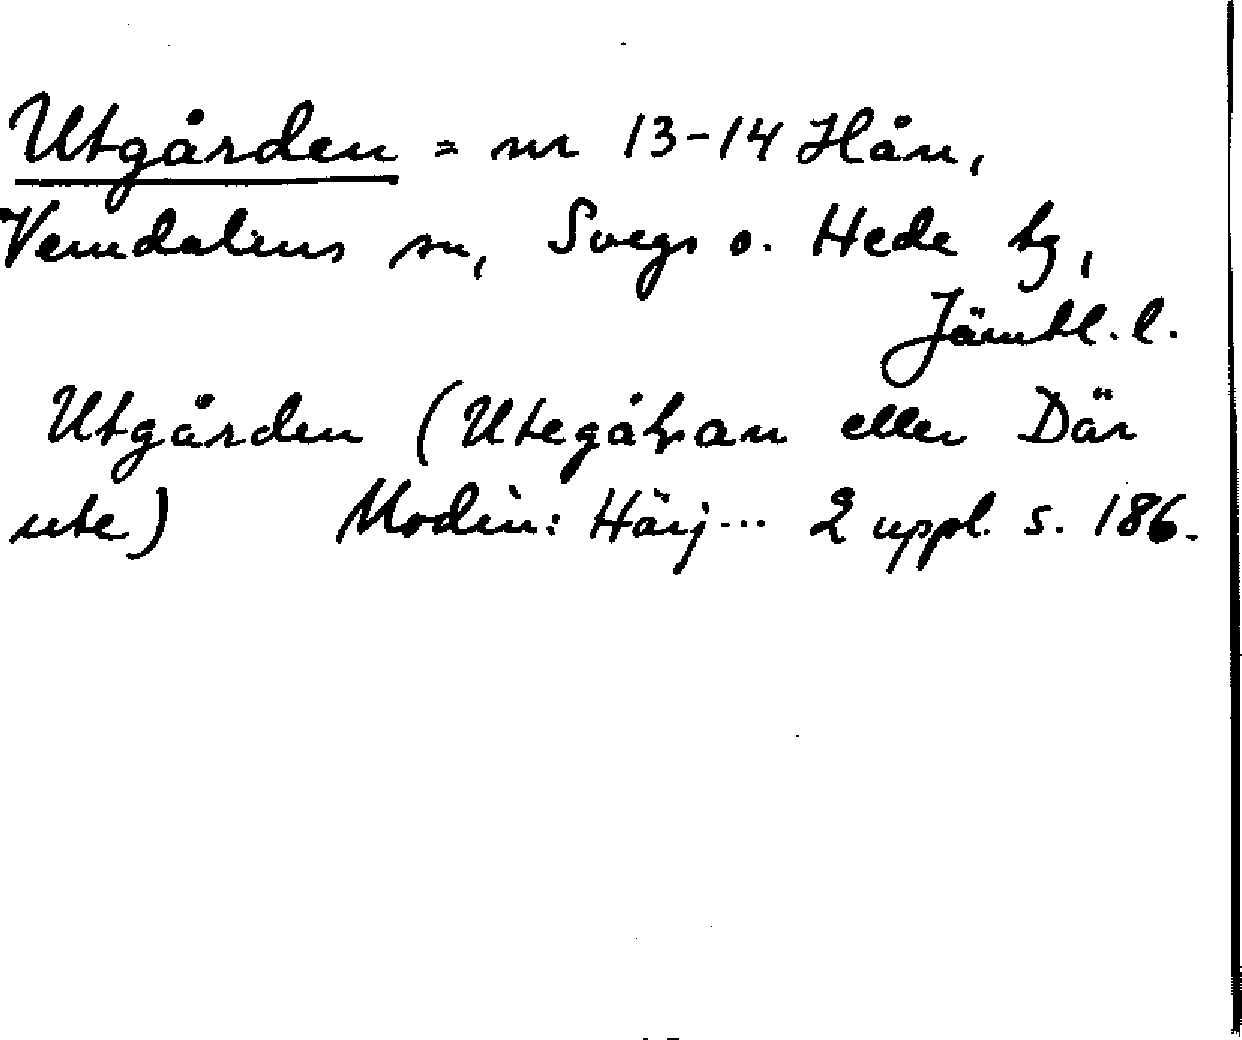 Utgården = nr 13-14 Hån,
Vemdalens sn, Svegs o. Hede tg,
Jämtl. l.
Utgården ( eller Där
ute) Modin: Härj... 2 uppl. s. 186.